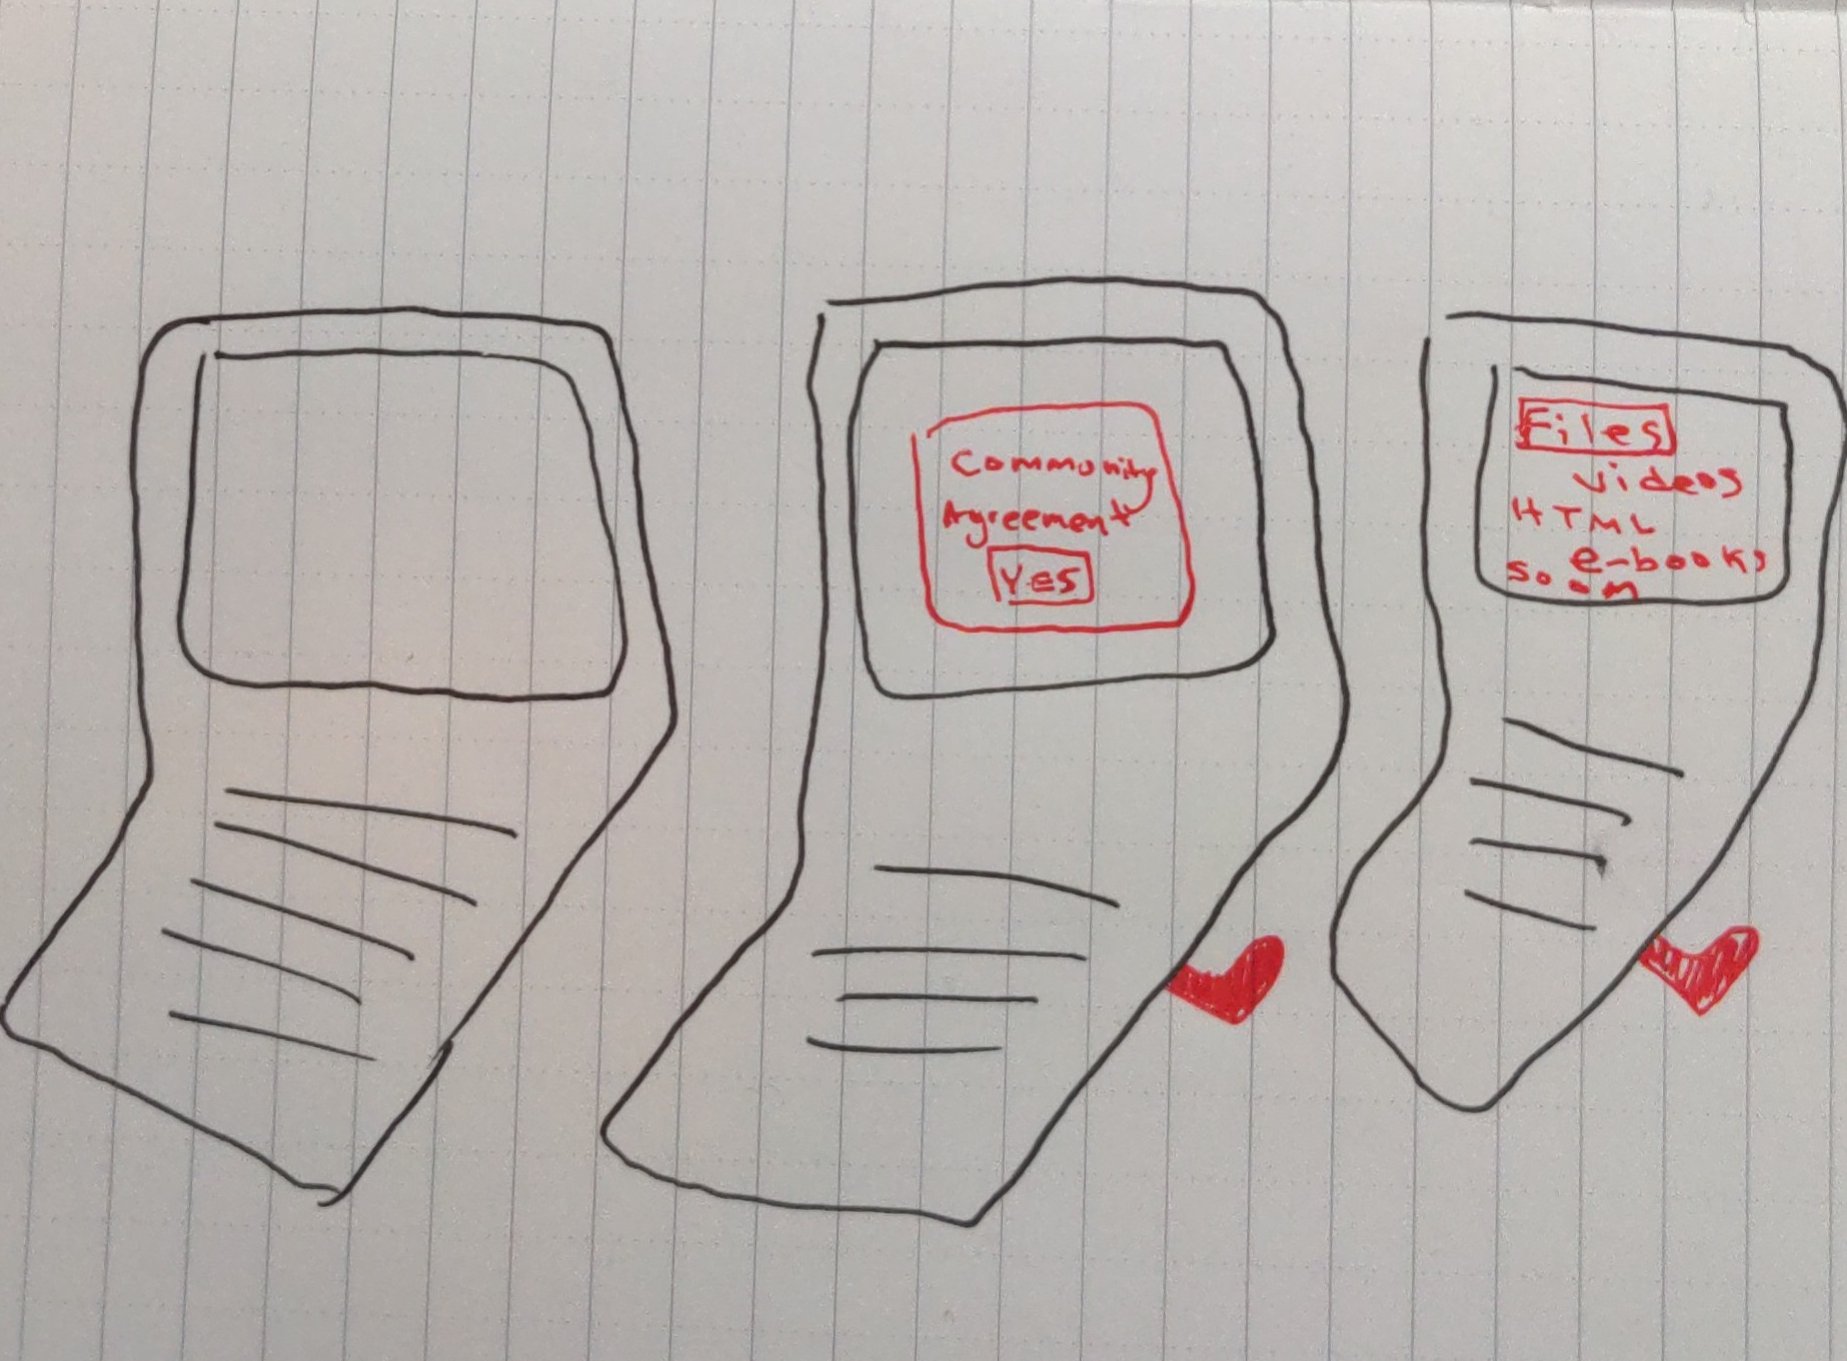 Community
Agreement
Yes
Files
Videos
HTML
e-books
soon